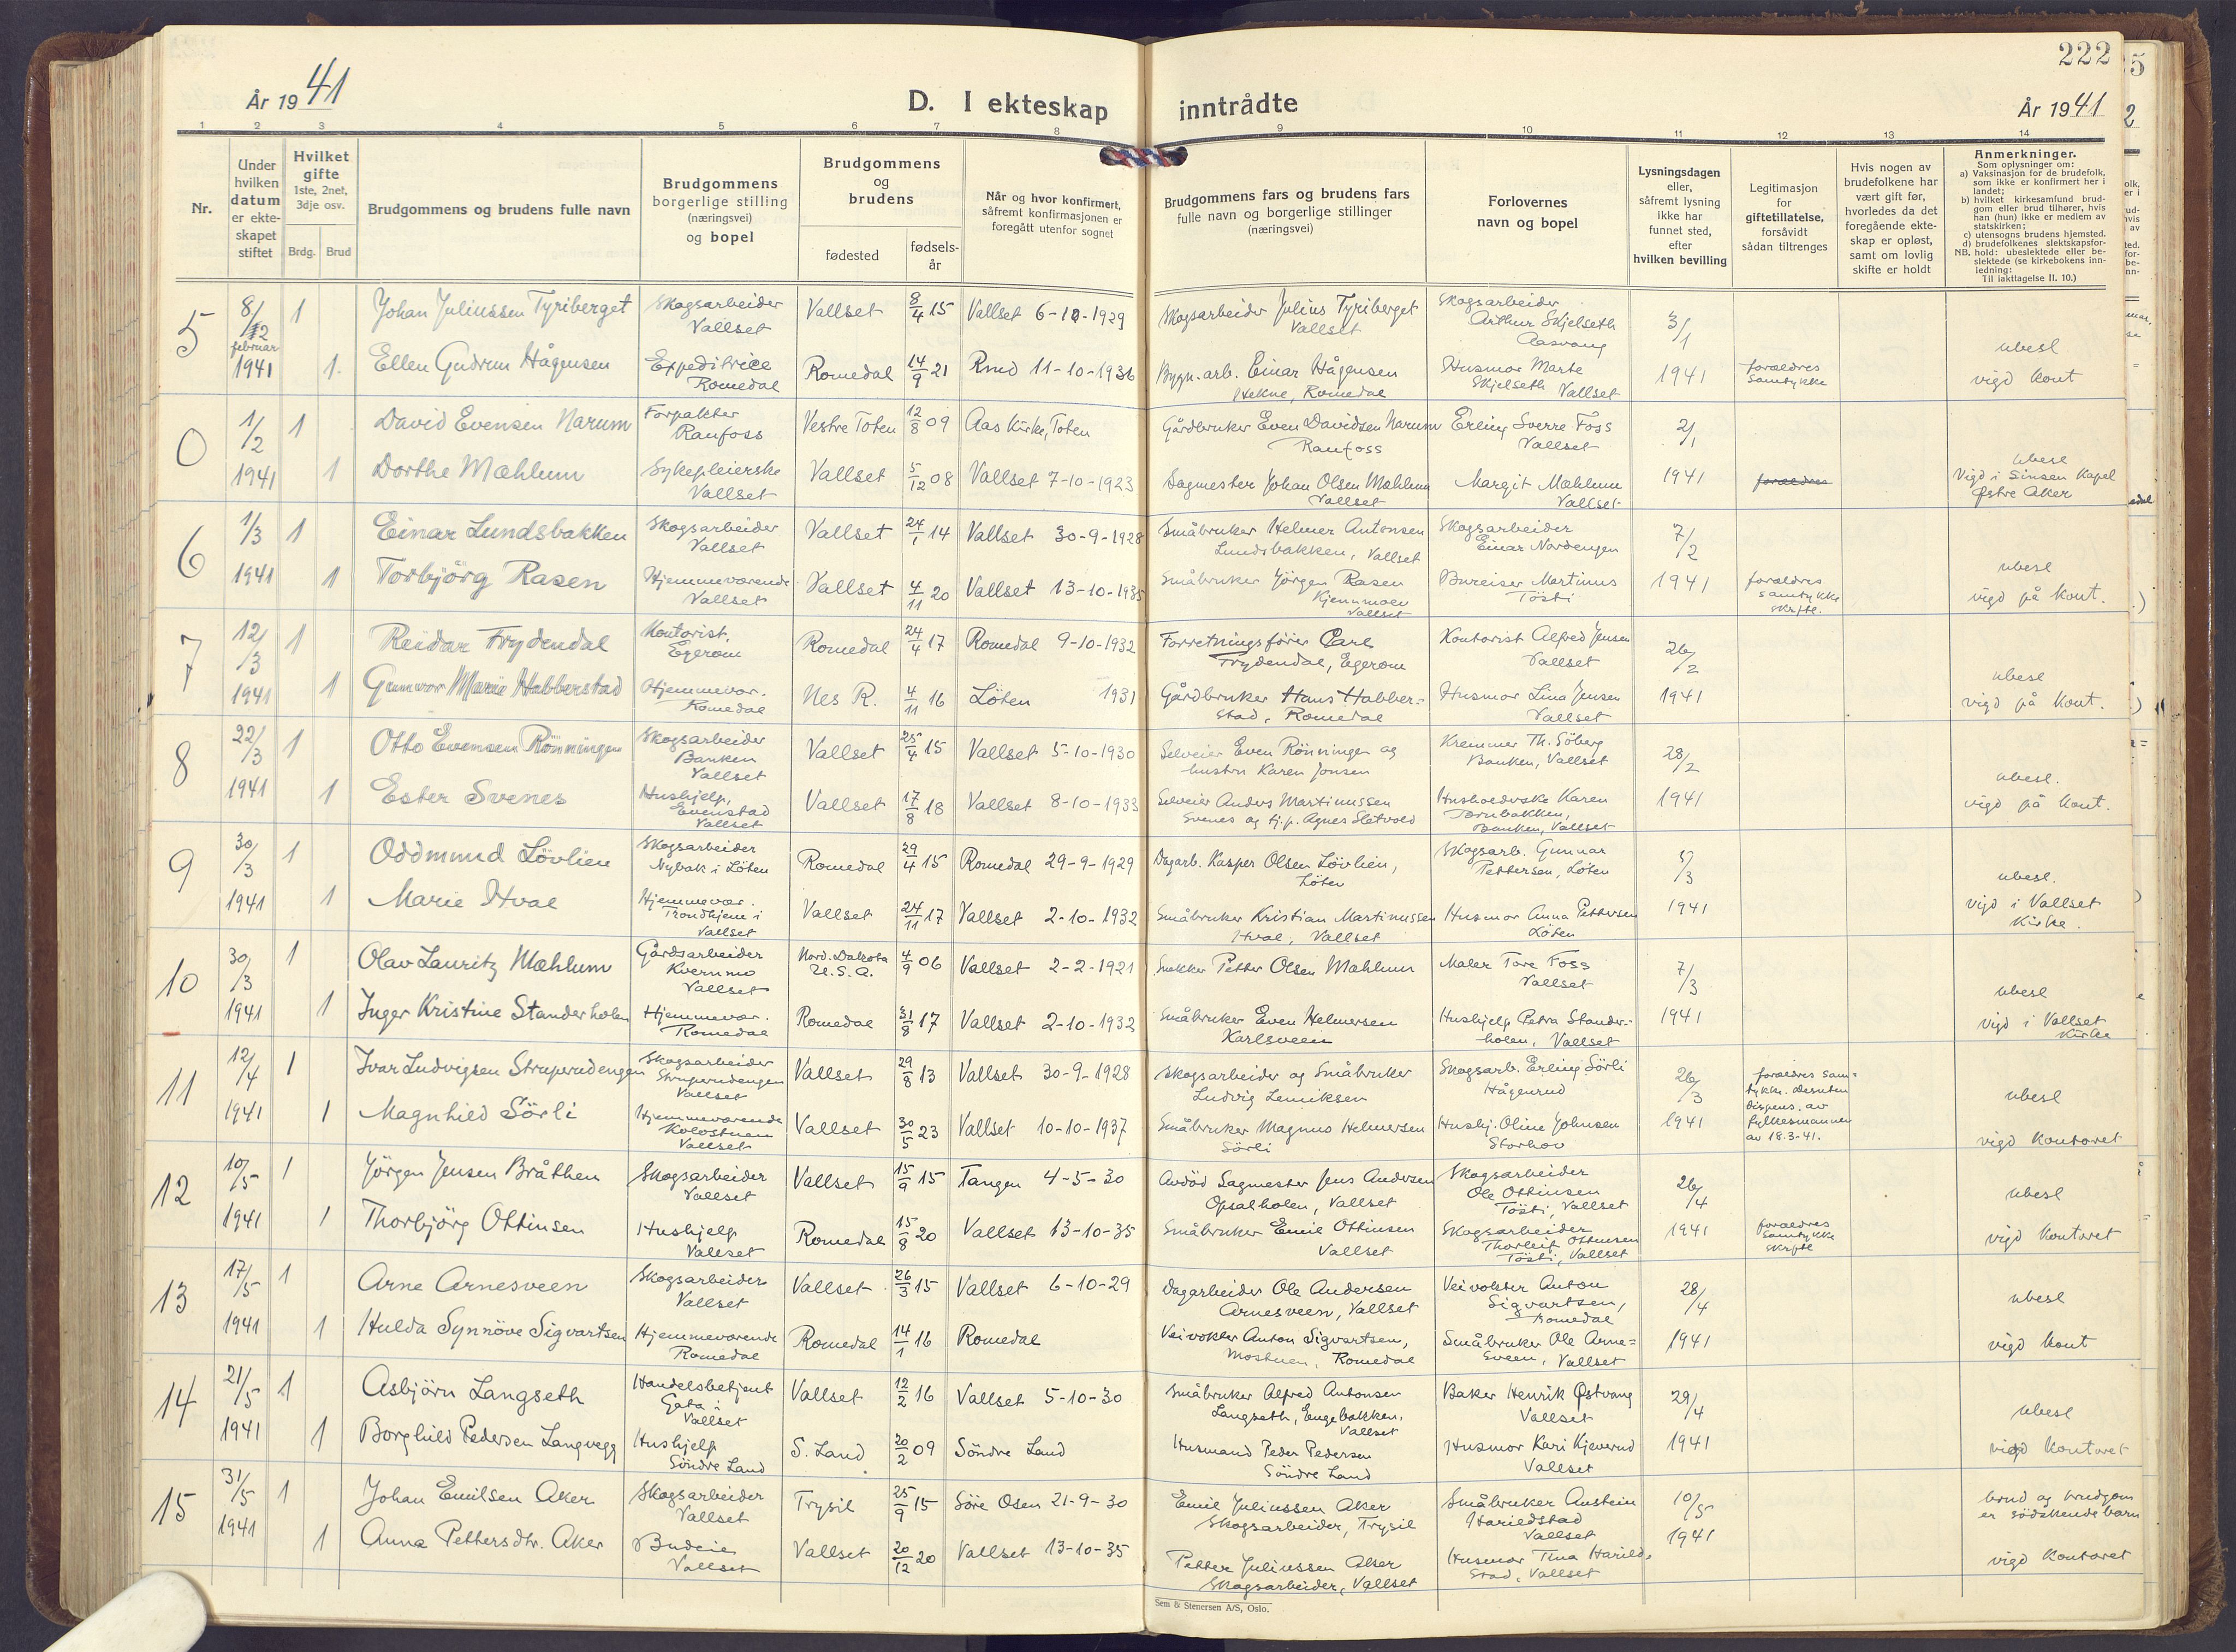 222
År 1941
D. I ekteskap inntrådte
År 1941
1 2 3 4 5 6 7 8 9 10 11 12 13 14
Nr.
Under hvilken datum er ekteskapet stiftet
Hvilket gifte 1ste, 2net, 3dje osv.
Brdg. Brud
Brudgommens og brudens fulle navn
Brudgommens borgerlige stilling (næringsvei) og bopel
Brudgommens og brudens
fødested
fødselsår
Når og hvor konfirmert, såfremt konfirmasjonen er foregått utenfor sognet
Brudgommens fars og brudens fars fulle navn og borgerlige stillinger (næringsvei)
Forlovernes navn og bopel
Lysningsdagen eller, såfremt lysning ikke har funnet sted, efter hvilken bevilling
Legitimasjon for giftetillatelse, forsåvidt sådan tiltrenges
Hvis nogen av brudefolkene har vært gift før, hvorledes da det foregående ekteskap er opløst, samt om lovlig skifte er holdt
Anmerkninger.
Som oplysninger om:
a) Vaksinasjon for de brudefolk, som ikke er konfirmert her i landet;
b) hvilket kirkesamfund brudgom eller brud tilhører, hvis han (hun) ikke er medlem av statskirken;
c) utensogns brudens hjemsted.
d) brudefolkenes slektskapsforhold: ubeslektede eller beslektede (se kirkebokens innledning: Til iakttagelse II. 10.)
NB.
5 8/2 februar 1941 1 Johan Juliussen Tyriberget Skogsarbeider Vallset Vallset 8/4 15 Vallset 6-10-1929 Skogsarbeider Julius Tyriberget Vallset Skogsarbeider Arthur Skjelseth Aasvang 3/1
1 Ellen Gudrun Hågensen Expeditrice Romedal Romedal 14/9 21 Rmd 11-10-1936 Bygn. arb. Einar Hågensen Hekne, Romedal Husmor Marte Skjelseth Vallset 1941 foreldres samtykke ubesl vigd kont
0 1/2 1941 1 David Evensen Narum Forpakter Raufoss Vestre Toten 12/8 09 Aas Kirke, Toten Gårdbruker Even Davidsen Narum Raufoss Erling Sverre Foss Vallset 2/1
1 Dorthe Mæhlum Sykepleierske Vallset Vallset 5/12 08 Vallset 7-10-1923 Sagmester Johan Olsen Mæhlum Vallset Margit Mæhlum Vallset 1941 foreldres ubesl Vigd i Sinsen Kapel Østre Aker
6 1/3 1941 1 Einar Lundsbakken Skogsarbeider Vallset Vallset 24/1 14 Vallset 30-9-1928 Småbruker Helmer Antonsen Lundsbakken, Vallset Skogsarbeider Einar Nordengen 7/2
1 Torbjörg Rasen Hjemmeværende Vallset Vallset 4/11 20 Vallset 13-10-1935 Småbruker Jörgen Rasen Kjernmoen Vallset Bureiser Martinus Tösti 1941 foreldres samtykke skriftl. ubesl vigd på kont.
7 12/3 1941 1 Reidar Frydendal Kontorist, Egerom Romedal 24/4 17 Romedal 9-10-1932 Forretningsförer Carl Frydendal, Egerom Kontorist Alfred Jensen Vallset 26/2
1 Gunvor Marie Habberstad Hjemmevær. Romedal Nes R. 4/11 16 Löten 1931 Gårdbruker Hans Habberstad, Romedal Husmor Lina Jensen Vallset 1941 ubesl vigd på kont.
8 22/3 1941 1 Otto Evensen Rönningen Skogsarbeider Banken Vallset Vallset 25/4 15 Vallset 5-10-1930 Selveier Even Rönningen og hustru Karen Jonsen Kremmer Th. Söberg Banken, Vallset 28/2
1 Ester Svenes Hushjelp, Evenstad Vallset Vallset 17/8 18 Vallset 8-10-1933 Selveier Anders Martinussen Svenes og tj.p. Agnes Sletvold Husholderske Karen Tørnbakken, Banken, Vallset 1941 ubesl. vigd på kont.
9 30/3 1941 1 Oddmund Lövlien Skogsarbeider Nybak i Löten Romedal 29/4 15 Romedal 29-9-1929 Dagarb. Kasper Olsen Lövlien, Löten Skogsarb. Gunnar Pettersen, Löten 5/3
1 Marie Hval Hjemmevær. Trondhjem i Vallset Vallset 24/11 17 Vallset 2-10-1932 Småbruker Kristian Martinussen Hval, Vallset Husmor Anna Pettersen Löten 1941 ubesl. vigd i Vallset Kirke.
10 30/3 1941 1 Olav Lauritz Mæhlum Gårdsarbeider Kvernmo Vallset Nord. Dakota U.S.A. 4/9 06 Vallset 2-2-1921 Snekker Petter Olsen Mæhlum Maler Tore Foss Vallset 7/3
1 Inger Kristine Standerholen Hjemmevær. Romedal Romedal 31/8 17 Vallset 2-10-1932 Småbruker Even Helmersen Karlsveen Hushjelp Petra Standerholen, Vallset 1941 ubesl vigd i Vallset Kirke
11 12/4 1941 1 Ivar Ludvigsen Struperudengen Skogsarbeider Struperudengen Vallset Vallset 29/8 13 Vallset 30-9-1928 Skogsarbeider og Småbruker Ludvig Lemiksen Skogsarb. Erling Sörli Hågenrud 26/3
1 Magnhild Sörli Hjemmeværende Kolostuen Vallset Vallset 30/5 23 Vallset 10-10-1937 Småbruker Magnus Helmersen Sörli Hushj. Oline Johnsen Storhov 1941 foreldres samtykke. desuten dispens. av fylkesmannen av 18.3-41. ubesl vigd kontoret
12 10/5 1941 1 Jörgen Jensen Bråthen Skogsarbeider Vallset Vallset 15/9 15 Tangen 4-5-30 Avdöd Sagmester Jens Andersen Opsalholen, Vallset Skogsarbeider Ole Ottinsen Tösti, Vallset 26/4
1 Thorbjörg Ottinsen Hushjelp Vallset Romedal 15/8 20 Vallset 13-10-35 Småbruker Emil Ottinsen Vallset Skogsarbeider Thorleif Ottinsen Tösti, Vallset 1941 foreldres samtykke skriftl ubesl vigd kontoret
13 17/5 1941 1 Arne Arnesveen Skogsarbeider Vallset Vallset 26/3 15 Vallset 6-10-29 Dagarbeider Ole Andersen Arnesveen, Vallset Veivokter Anton Sigvartsen, Romedal 28/4
1 Hulda Synnöve Sigvartsen Hjemmeværende Romedal Romedal 14/1 16 Romedal Veivokter Anton Sigvartsen, Mostuen, Romedal Småbruker Ole Arnesveen, Vallset 1941 ubesl vigd kont
14 21/5 1941 1 Asbjörn Langseth Handelsbetjent Gata i Vallset Vallset 12/2 16 Vallset 5-10-30 Småbruker Alfred Antonsen Langseth, Engebakken, Vallset Baker Henrik Østvang Vallset 29/4
1 Borghild Pedersen Langvegg Hushjelp Söndre Land S. Land 20/2 09 Söndre Land Husmand Peder Pedersen Söndre Land Husmor Kari Kjeverud Vallset 1941 ubesl vigd kontoret
15 31/5 1941 1 Johan Emilsen Aker Skogsarbeider Vallset Trysil 25/9 15 Söre Osen 21-9-30 Emil Juliussen Aker Skogsarbeider, Trysil Småbruker Austein Harildstad Vallset 10/5
1 Anna Pettersdtr. Aker Budeie Vallset Vallset 20/12 20 Vallset 13-10-35 Petter Juliussen Aker Skogsarbeider, Vallset Husmor Tina Harildstad, Vallset 1941 brud og brudgom er södskendebarn vigd kontoret
Sem & Stenersen A/S, Oslo.